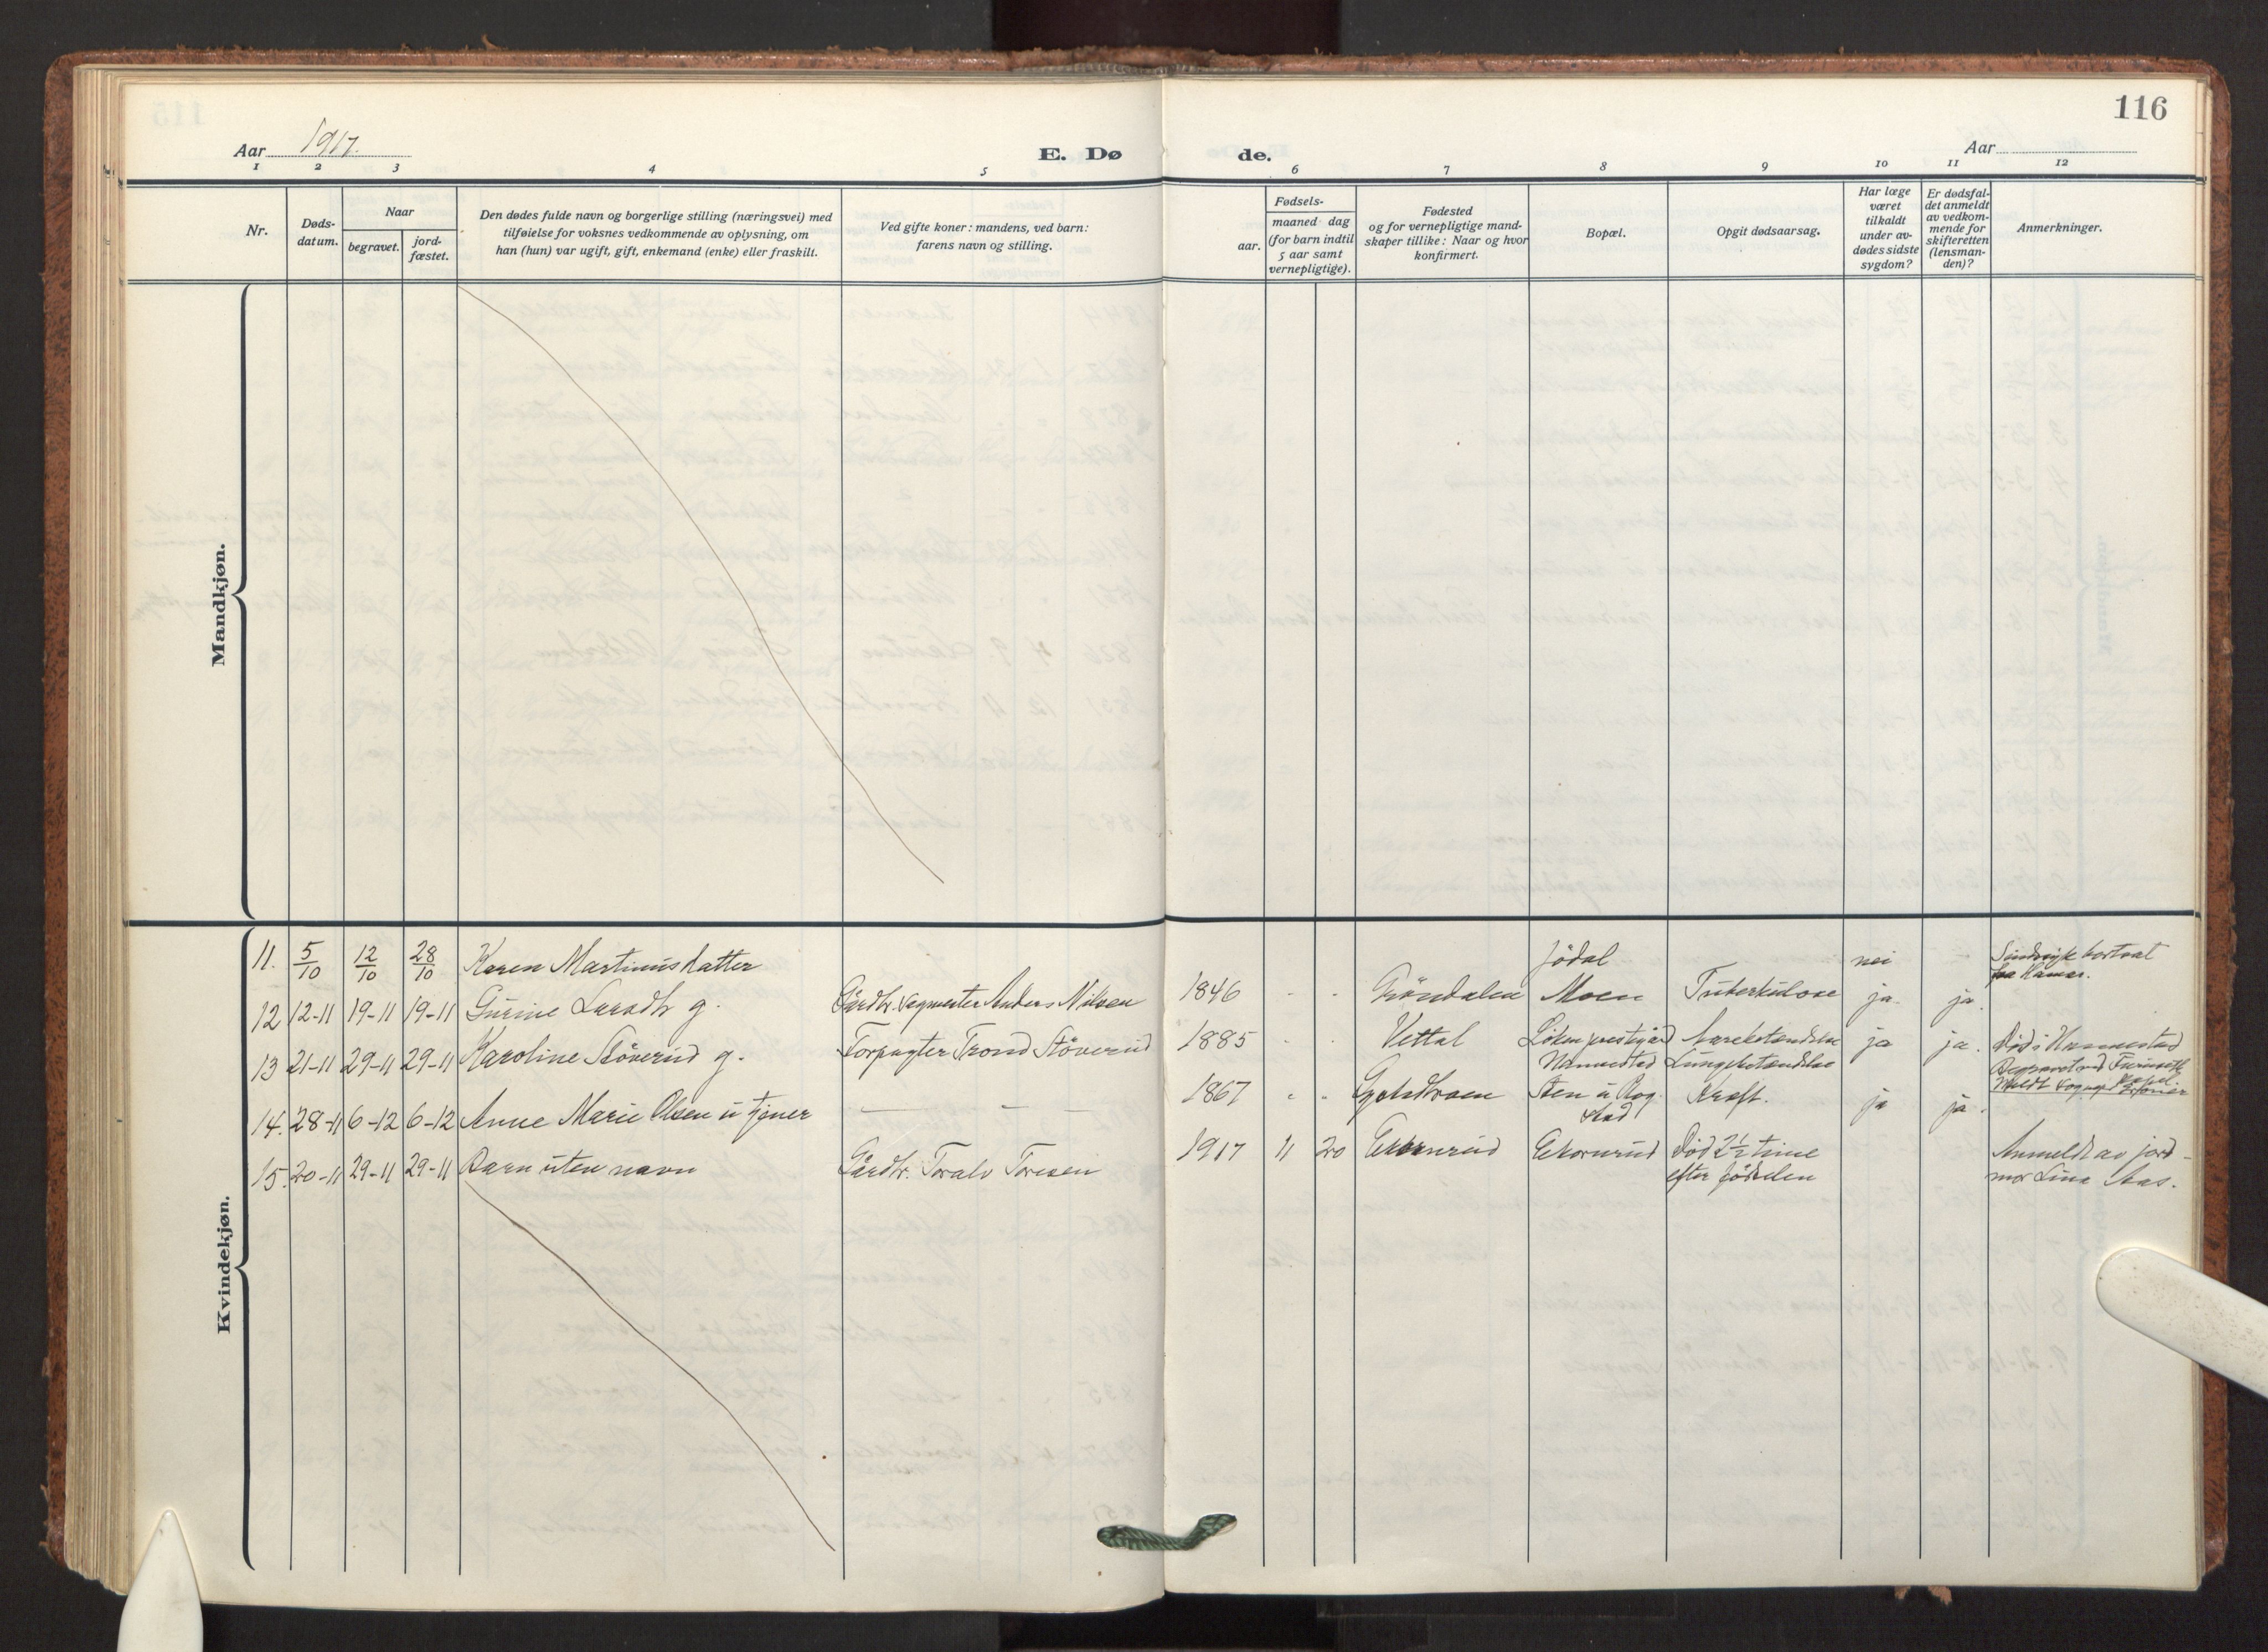 116
Aar 1917.
E. Dø
de.
Aar
1 2 3 4 5 6 7 8 9 10 11 12
Nr.
Døds-
datum.
Naar
begravet.
jord-
fæstet.
Den dødes fulde navn og borgerlige stilling (næringsvei) med
tilføielse for voksnes vedkommende av oplysning, om
han (hun) var ugift, gift, enkemand (enke) eller fraskilt.
Ved gifte koner: mandens, ved barn:
farens navn og stilling.
Fødsels-
aar.
maaned dag
(for barn indtil
5 aar samt
vernepligtige).
Fødested
og for vernepligtige mand-
skaper tillike: Naar og hvor
konfirmert.
Bopæl.
Opgit dødsaarsag.
Har læge
været
tilkaldt
under av-
dødes sidste
sygdom?
Er dødsfal-
det anmeldt
av vedkom-
mende for
skifteretten
(lensman-
den)?
Anmerkninger.
Mandkjøn.
Kvindekjøn.
11. 5/10 12/10 28/10 Karen Martinusdatter Jödal nei
fra Hamar.
12 12-11 19-11 19-11 Gurine Larsdtr g. Gårdbr. Anders Nilsen 1846 - - Gröndalen Moen Tuberkulose ja. ja.
13 21-11 29-11 29-11 Karoline Stöverud g. Forpagter Trond Stöverud 1885 - - Vettal Löten prestgård ja ja. Död i
14. 28-11 6-12 6-12 Anne Marie Olsen u tjener — - — 1867 - - Sten i Rog
stad Kræft. ja ja.
15. 20-11 29-11 29-11 Barn uten navn Gårdbr. Toralv Toresen 1917 11 20 Ekornrud Ekornrud Död 2 1/2 time
efter födselen
Anmeldt av jord-
mor Lina Aas.